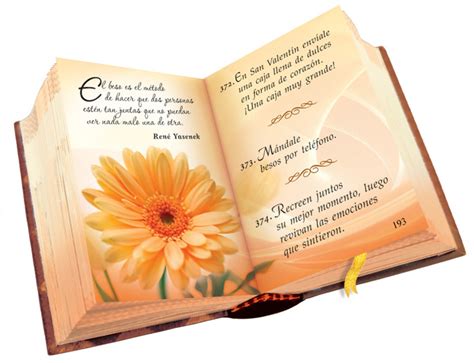 El beso es el método
de hacer que dos personas
estén tan juntas que no puedan
ver nada malo una de otra.
René Yasenek
372. En San Valentín envíale
una caja llena de dulces
en forma de corazón.
¡Una caja muy grande!
373. Mándale
besos por teléfono.
374. Recreen juntos
su mejor momento, luego
revivan las emociones
que sintieron.
193